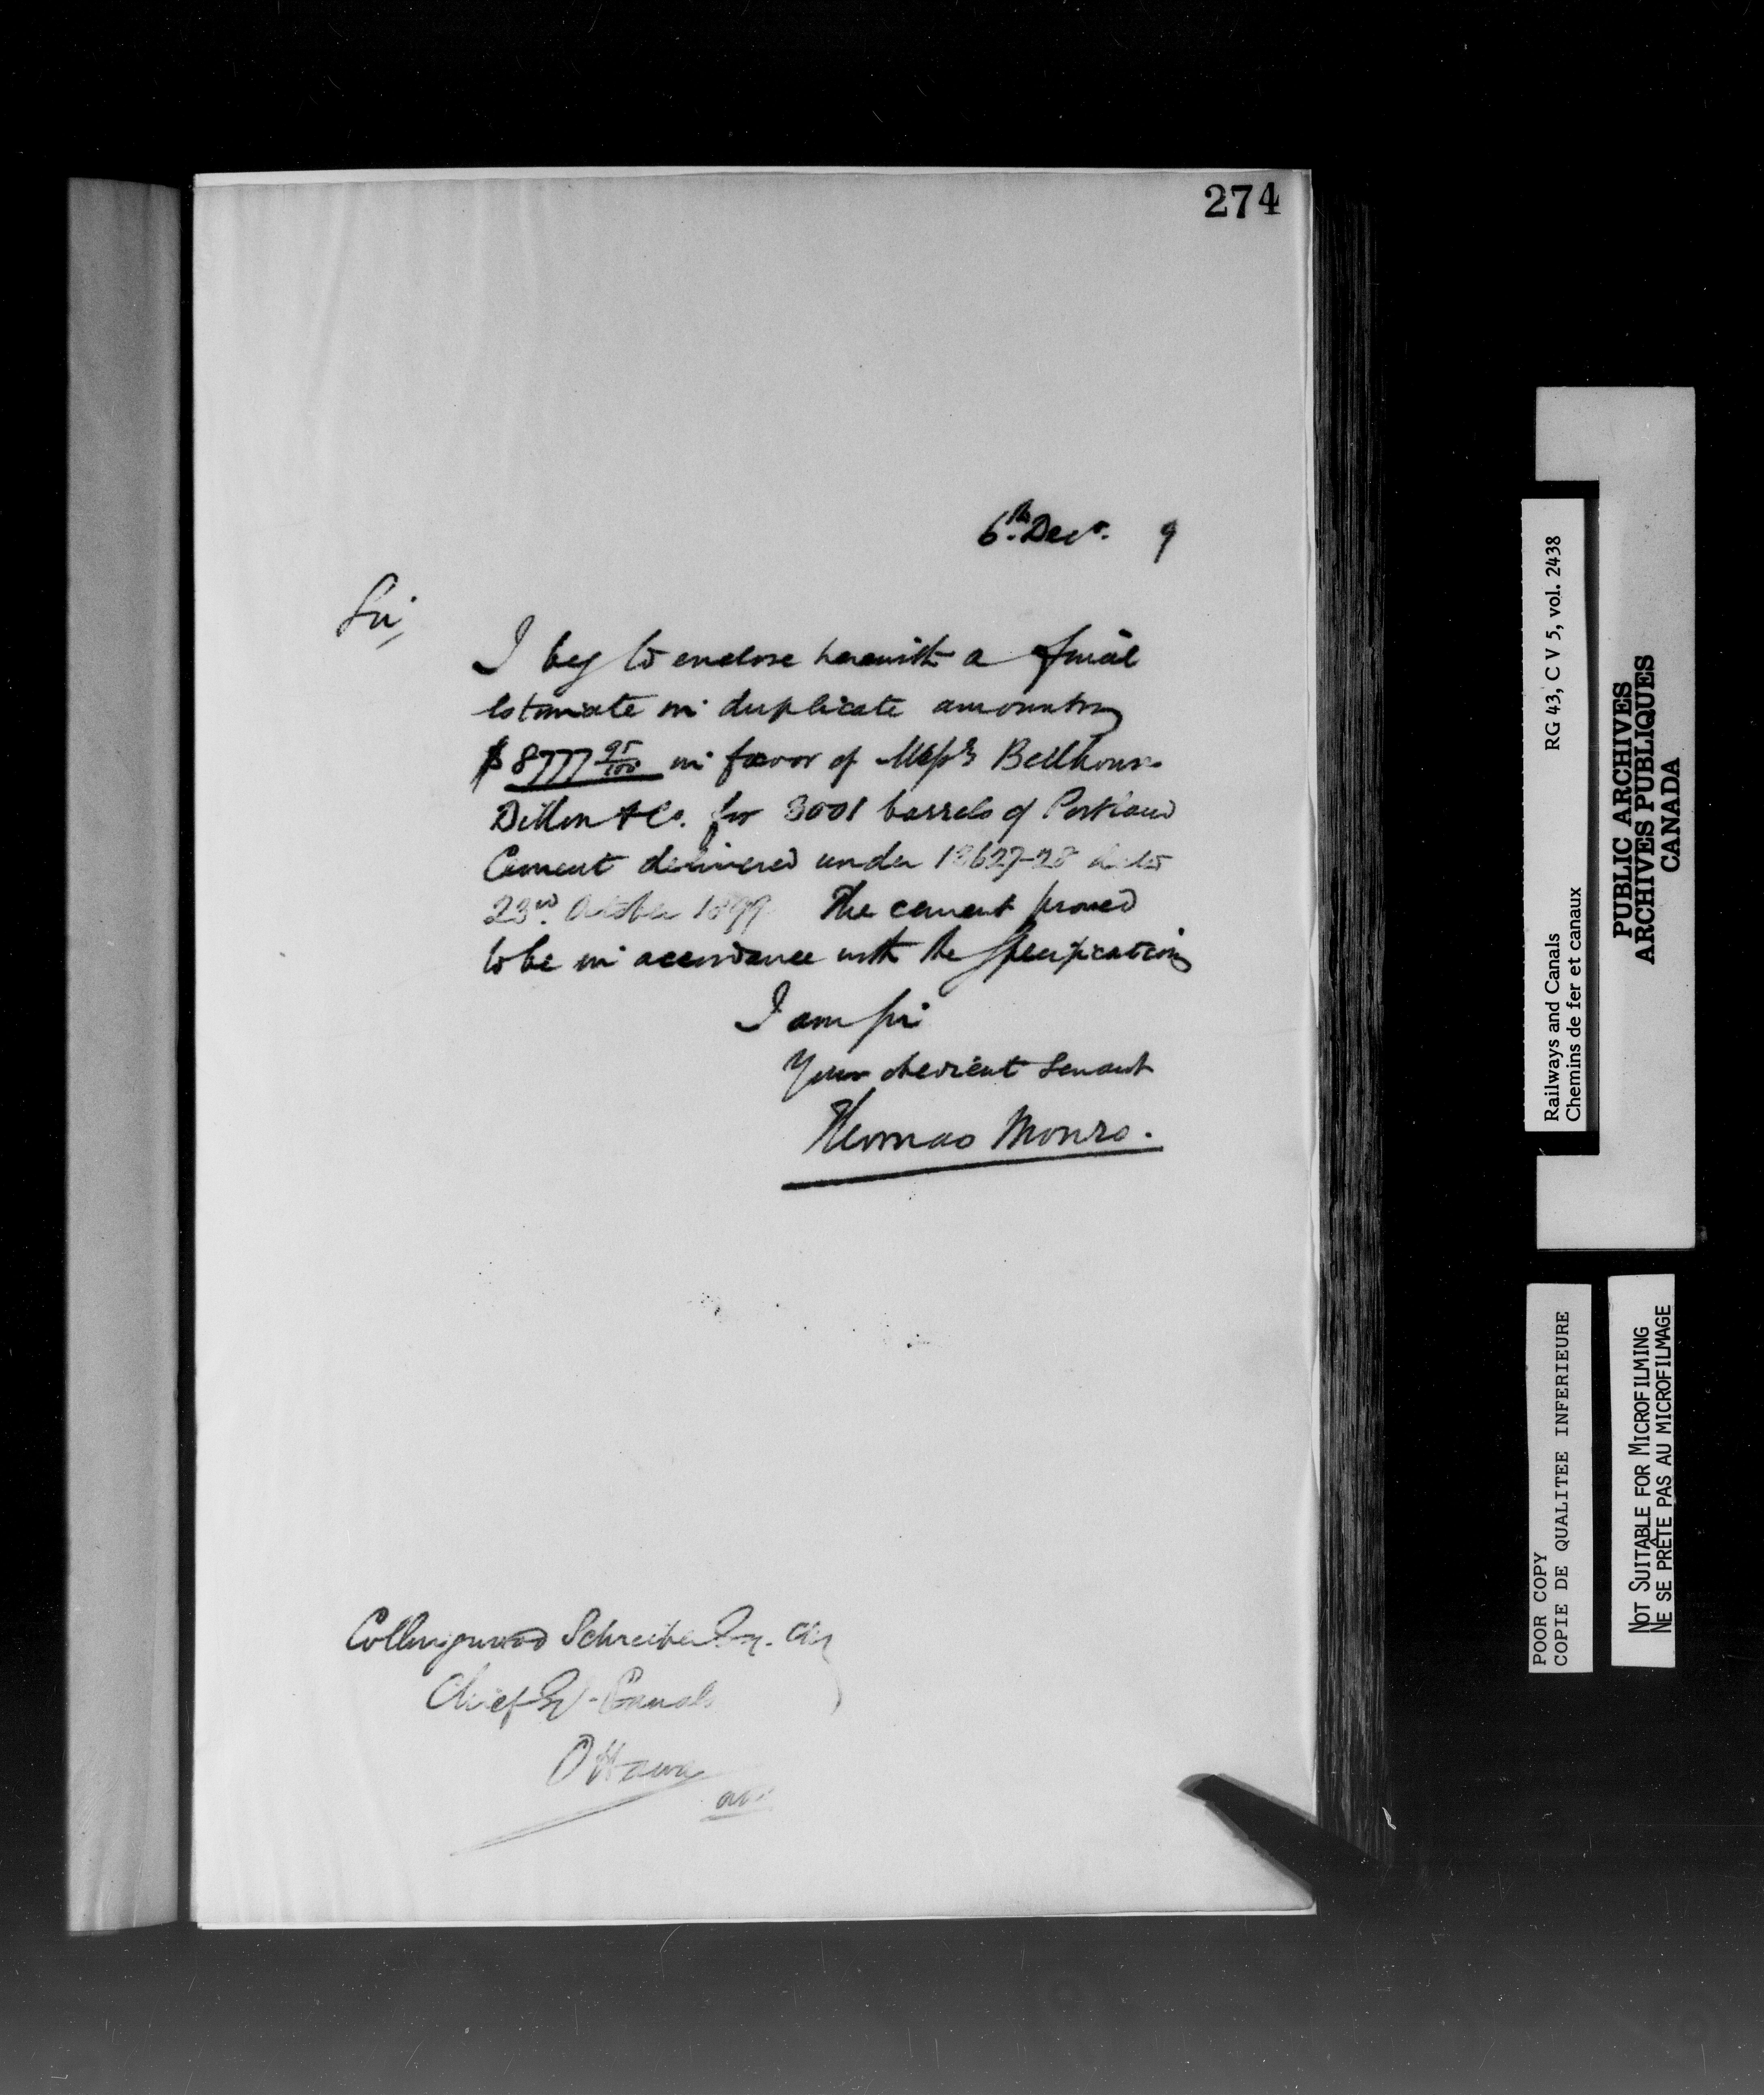 274
6th Decr. 9
Sir,
I beg to enclose herewith a final
estimate in duplicate amounting
$8777 95/100 in favor of Messrs Bellhouse
Dillon & Co. for 3001 barrels of Portland
Cement delivered under 13627-28 dated
23rd October 1899 The cement proved
to be in accordance with the specifications
I am Sir
Your obedient servant
Thomas Monro.
Collingwood Schreiber Esq.
Chief Canals
Ottawa
Railways and Canals RG 43, C V 5, vol. 2438
Chemins de fer et canaux
PUBLIC ARCHIVES
ARCHIVES PUBLIQUES
CANADA
POOR COPY
COPIE DE QUALITEE INFERIEURE
NOT SUITABLE FOR MICROFILMING
NE SE PRÊTE PAS AU MICROFILMAGE